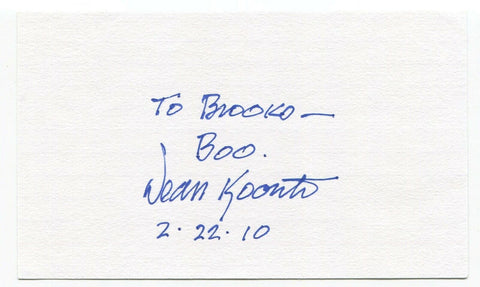 To Brooke —
Boo.
Dean Koontz
2.22.10